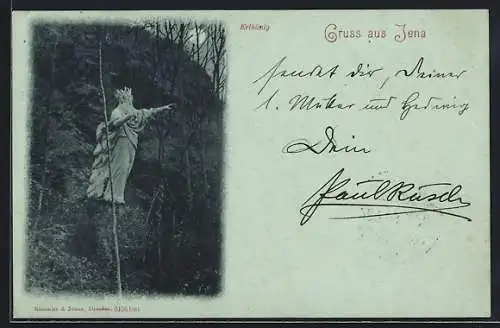 Erlkönig
Gruss aus Jena
sendet dir, Deiner
l. Mutter und Hedwig
Dein
Paul Rusch
& Dresden.